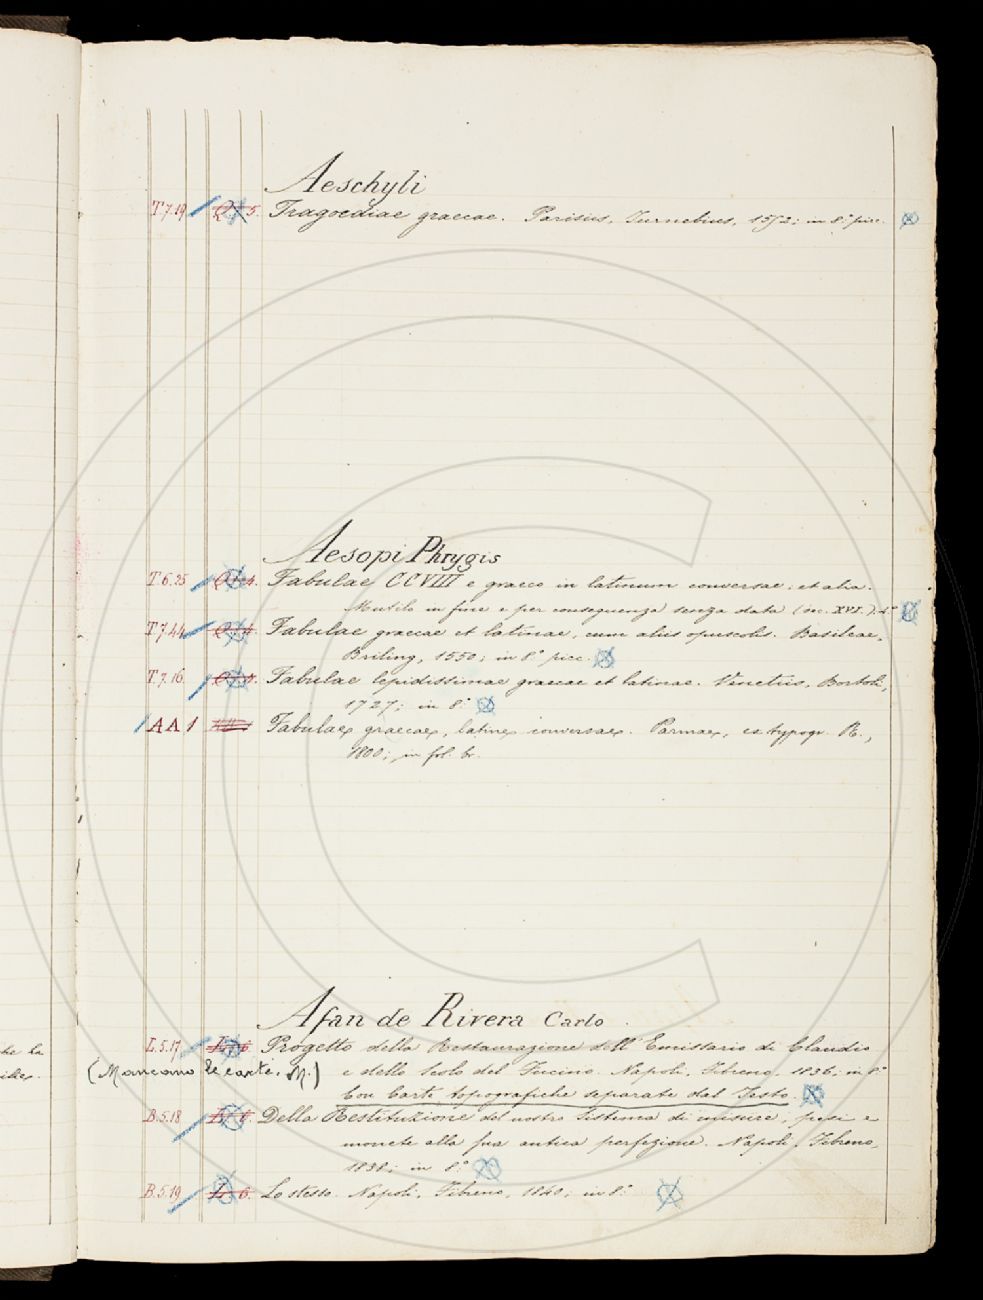 Aeschyli
T.7.19 5. Tragoediae graecae. Parisiis, Turnebus, 1552; in 8.° picc.
Aesopi Phrygis
T.6.25 4. Fabulae CCVIII e graeco in latinum conversae; et alia.
Mutilo in fine e per conseguenza senza data (sec. XVI.). 4°
T.7.44 4. Fabulae graecae et latinae, cum aliis opusculis. Basileae,
Briling, 1550; in 8.° picc.
T.7.16. Fabulae lepidissimae graecae et latinae. Venetiis, Bortoli,
1727; in 8.°
AA1 Fabulae graecae, latine conversae. Parmae, ex typogr. R.,
1800; in fol. br.
Afan de Rivera Carlo.
L.5.17 6 Progetto della Restaurazione dell' Emissario di Claudio
(Mancano le carte. M.) e dello Scolo del Fucino. Napoli, Fibreno, 1836; in 8.°
he la
Con Carte topografiche separate dal Testo.
B.5.18 6. Della Restituzione del nostro Sistema di misure, pesi e
monete alla sua antica perfezione. Napoli, Fibreno,
1838; in 8.°
B.5.19 6. Lo stesso. Napoli, Fibreno, 1840; in 8.°